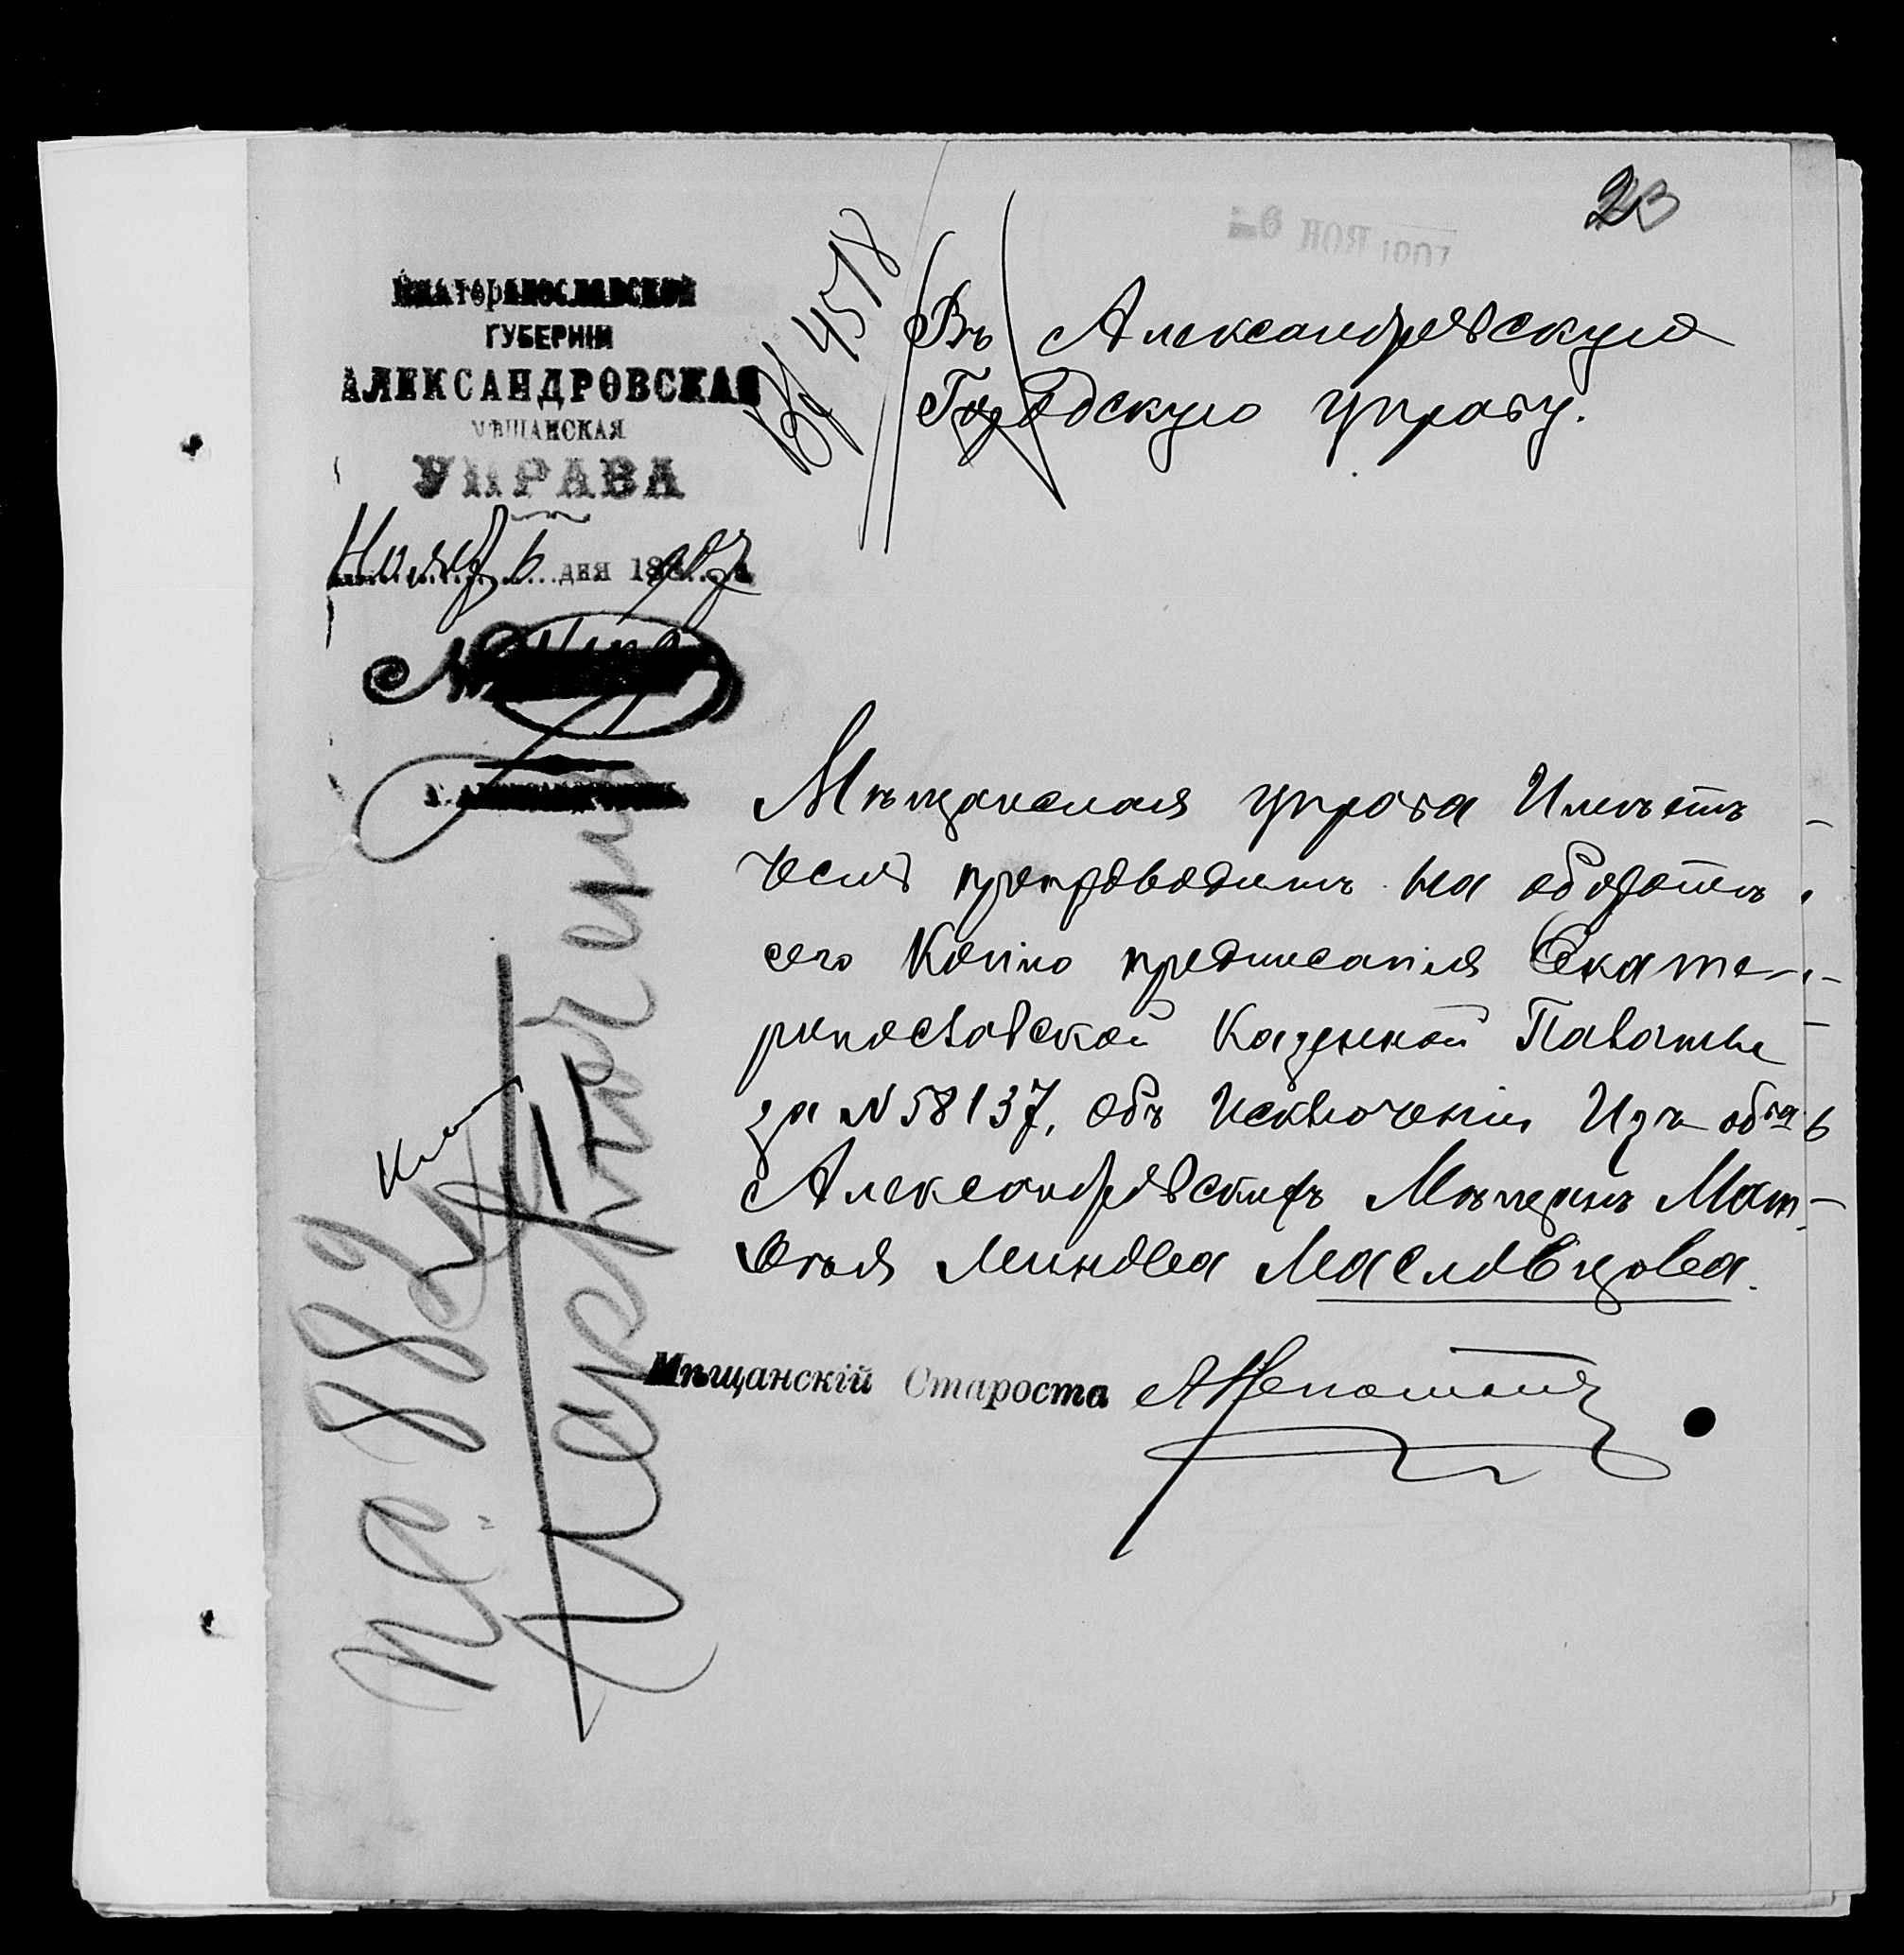 23
-6 НОЯ 1907
Екатеринославской
ГУБЕРНІИ
АЛЕКСАНДРОВСКАЯ
МѢЩАНСКАЯ
УПРАВА
Нояб 6 дня 1907
№
Вх 4518
Въ Александровскую
Городскую управу.
Мѣщанская управа Имѣетъ
честь препроводить на оборотѣ
сего Копію предписанія Екате-
ринославской Казенной Палаты
за N 58137, объ Исключеніи Изъ обва
Александровскихъ Мѣщанъ Мат-
вѣя Леинова Масловцова.
Мѣщанскій Староста
882